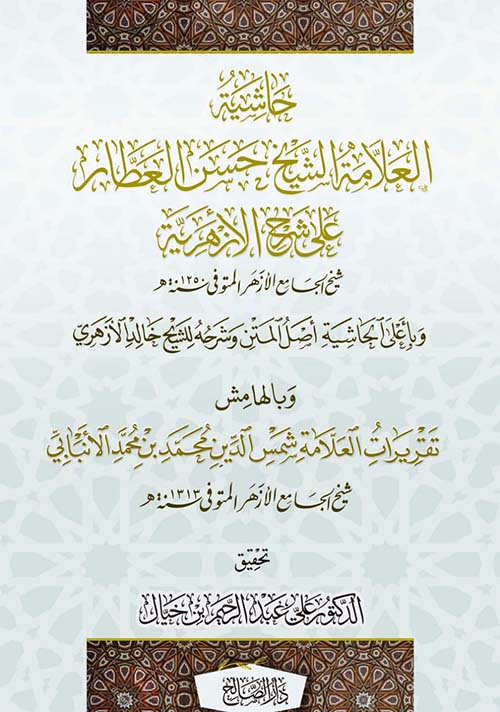 حَاشِيَةُ
العَلَّامَة الشَّيْخ حَسَن العَطَّار
عَلَى شَرْحِ الأَزْهَرِيَّة
شَيْخ الجَامِع الأَزْهَر المتوفى سَنَة ١٢٥٠ه
وَبِأَعْلَى الحَاشِيَةِ أَصْلُ المَتْنِ وَشَرْحُهُ لِلشَّيْخِ خَالِد الأَزْهَرِي
وَبِالهَامِش
تَقْرِيرَاتُ العَلَّامَةِ شَمْسِ الدِّينِ مُحَمَّد بْن مُحَمَّد الأَنْبَابِيِّ
شَيْخ الجَامِع الأَزْهَر المتوفى سَنَة ١٣١٣ه
تَحْقِيق
الدّكتُور عَلِيّ عَبْد الرَّحِيم بْن خَيَال
دَارُ الصَّالِح